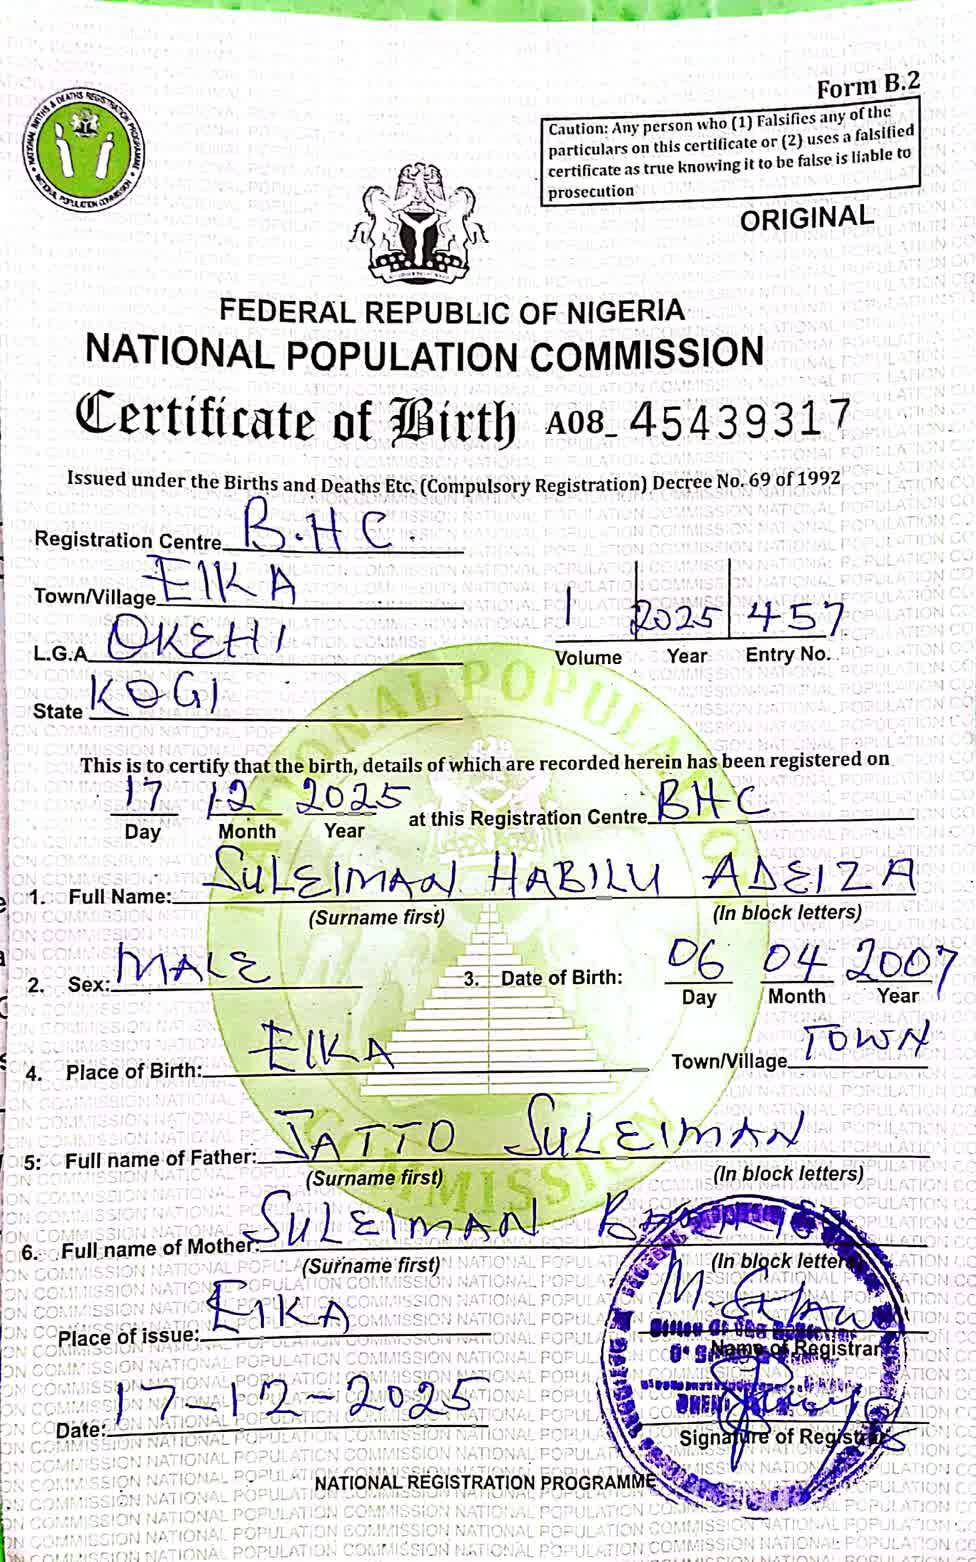 Form B.2
Caution: Any person who (1) Falsifies any of the
particulars on this certificate or (2) uses a falsified
certificate as true knowing it to be false is liable to
prosecution
NATIONAL BIRTHS & DEATHS REGISTRATION PROGRAMME
NATIONAL POPULATION COMMISSION
ORIGINAL
FEDERAL REPUBLIC OF NIGERIA
NATIONAL POPULATION COMMISSION
Certificate of Birth A08_ 45439317
Issued under the Births and Deaths Etc. (Compulsory Registration) Decree No. 69 of 1992
Registration Centre B.H.C.
Town/Village EIKA
L.G.A OKEHI
State KOGI
1 2025 457
Volume Year Entry No.
This is to certify that the birth, details of which are recorded herein has been registered on
17 12 2025 at this Registration Centre BHC
Day Month Year
1. Full Name: SULEIMAN HABILU ADEIZA
(Surname first) (In block letters)
2. Sex: MALE 3. Date of Birth: 06 04 2007
Day Month Year
4. Place of Birth: EIKA Town/Village TOWN
5: Full name of Father: JATTO SULEIMAN
(Surname first) (In block letters)
6. Full name of Mother: SULEIMAN
(Surname first) (In block letters)
Place of issue: EIKA
Name of Registrar
Date: 17-12-2025
Signature of Registrar
NATIONAL REGISTRATION PROGRAMME